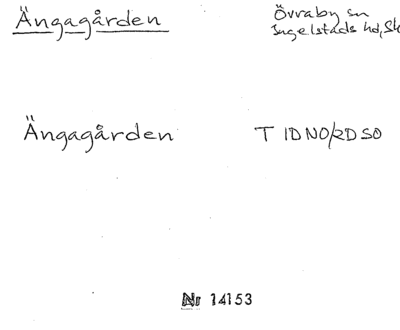 Ängagården
Övraby sn
Ingelstads hd, Sk
Ängagården T 1DNO/2DSO
Nr 14153